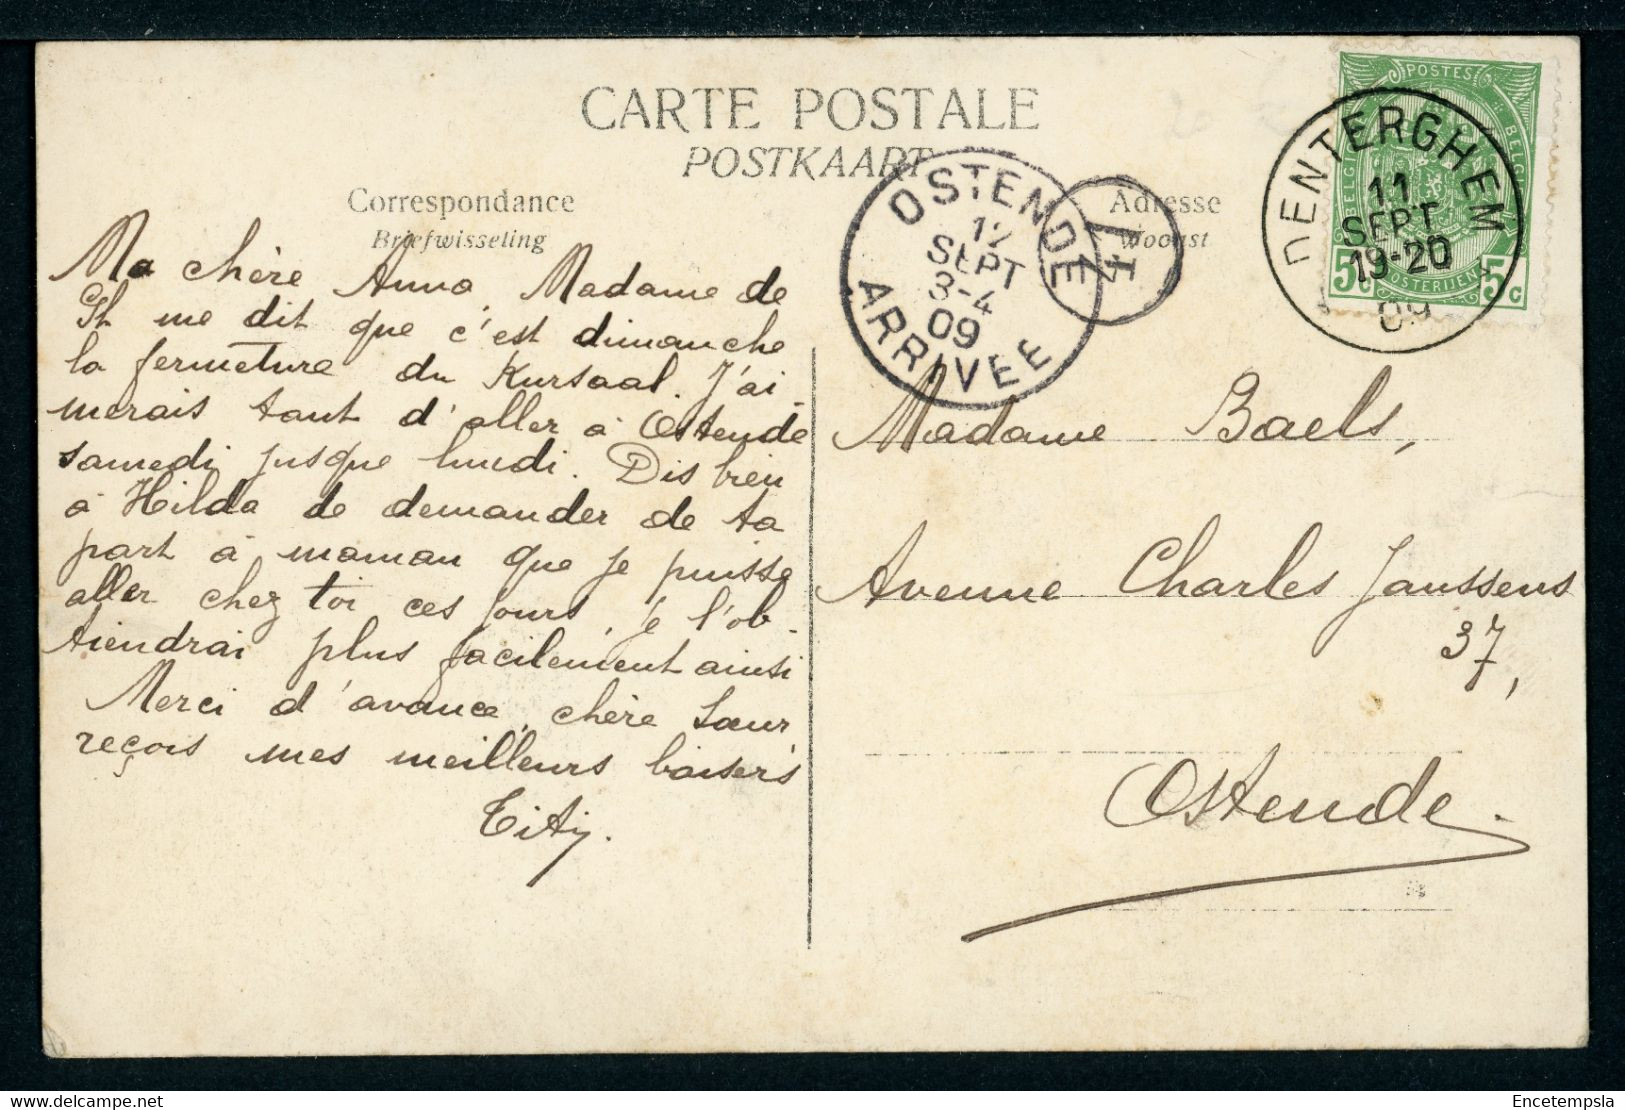 CARTE POSTALE
POSTKAART
Correspondance
Briefwisseling
Adresse
Woonst
Ma chère Anna, Madame de
St me dit que c'est dimanche
la fermeture du Kursaal. J'ai-
merais tant d'aller à Ostende
samedi jusque lundi. Dis bien
à Hilda de demander de ta
part à maman que je puisse
aller chez toi ces jours, je l'ob-
tiendrai plus facilement ainsi
Merci d'avance, chère Sœur
reçois mes meilleurs baisers
Tity.
Madame Baels,
Avenue Charles Janssens
37,
Ostende.
OSTENDE
12
SEPT
3-4
09
ARRIVEE
DENTERGHEM
11
SEPT
19-20
09
POSTES
BELGIQUE
BELGIE
POSTERIJEN
5 5c
delcampe.net
Encetempsla